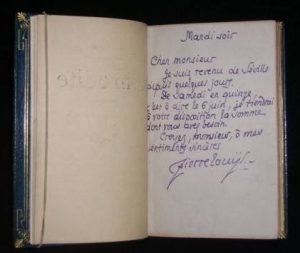 Mardi soir
Cher monsieur
Je suis revenu de Séville
depuis quelques jours.
De Samedi en quinze
c'est à dire le 6 juin, je tiendrai
à votre disposition la somme
dont vous avez besoin.
Croyez, monsieur, à mes
sentiments sincères
Pierre Louÿs